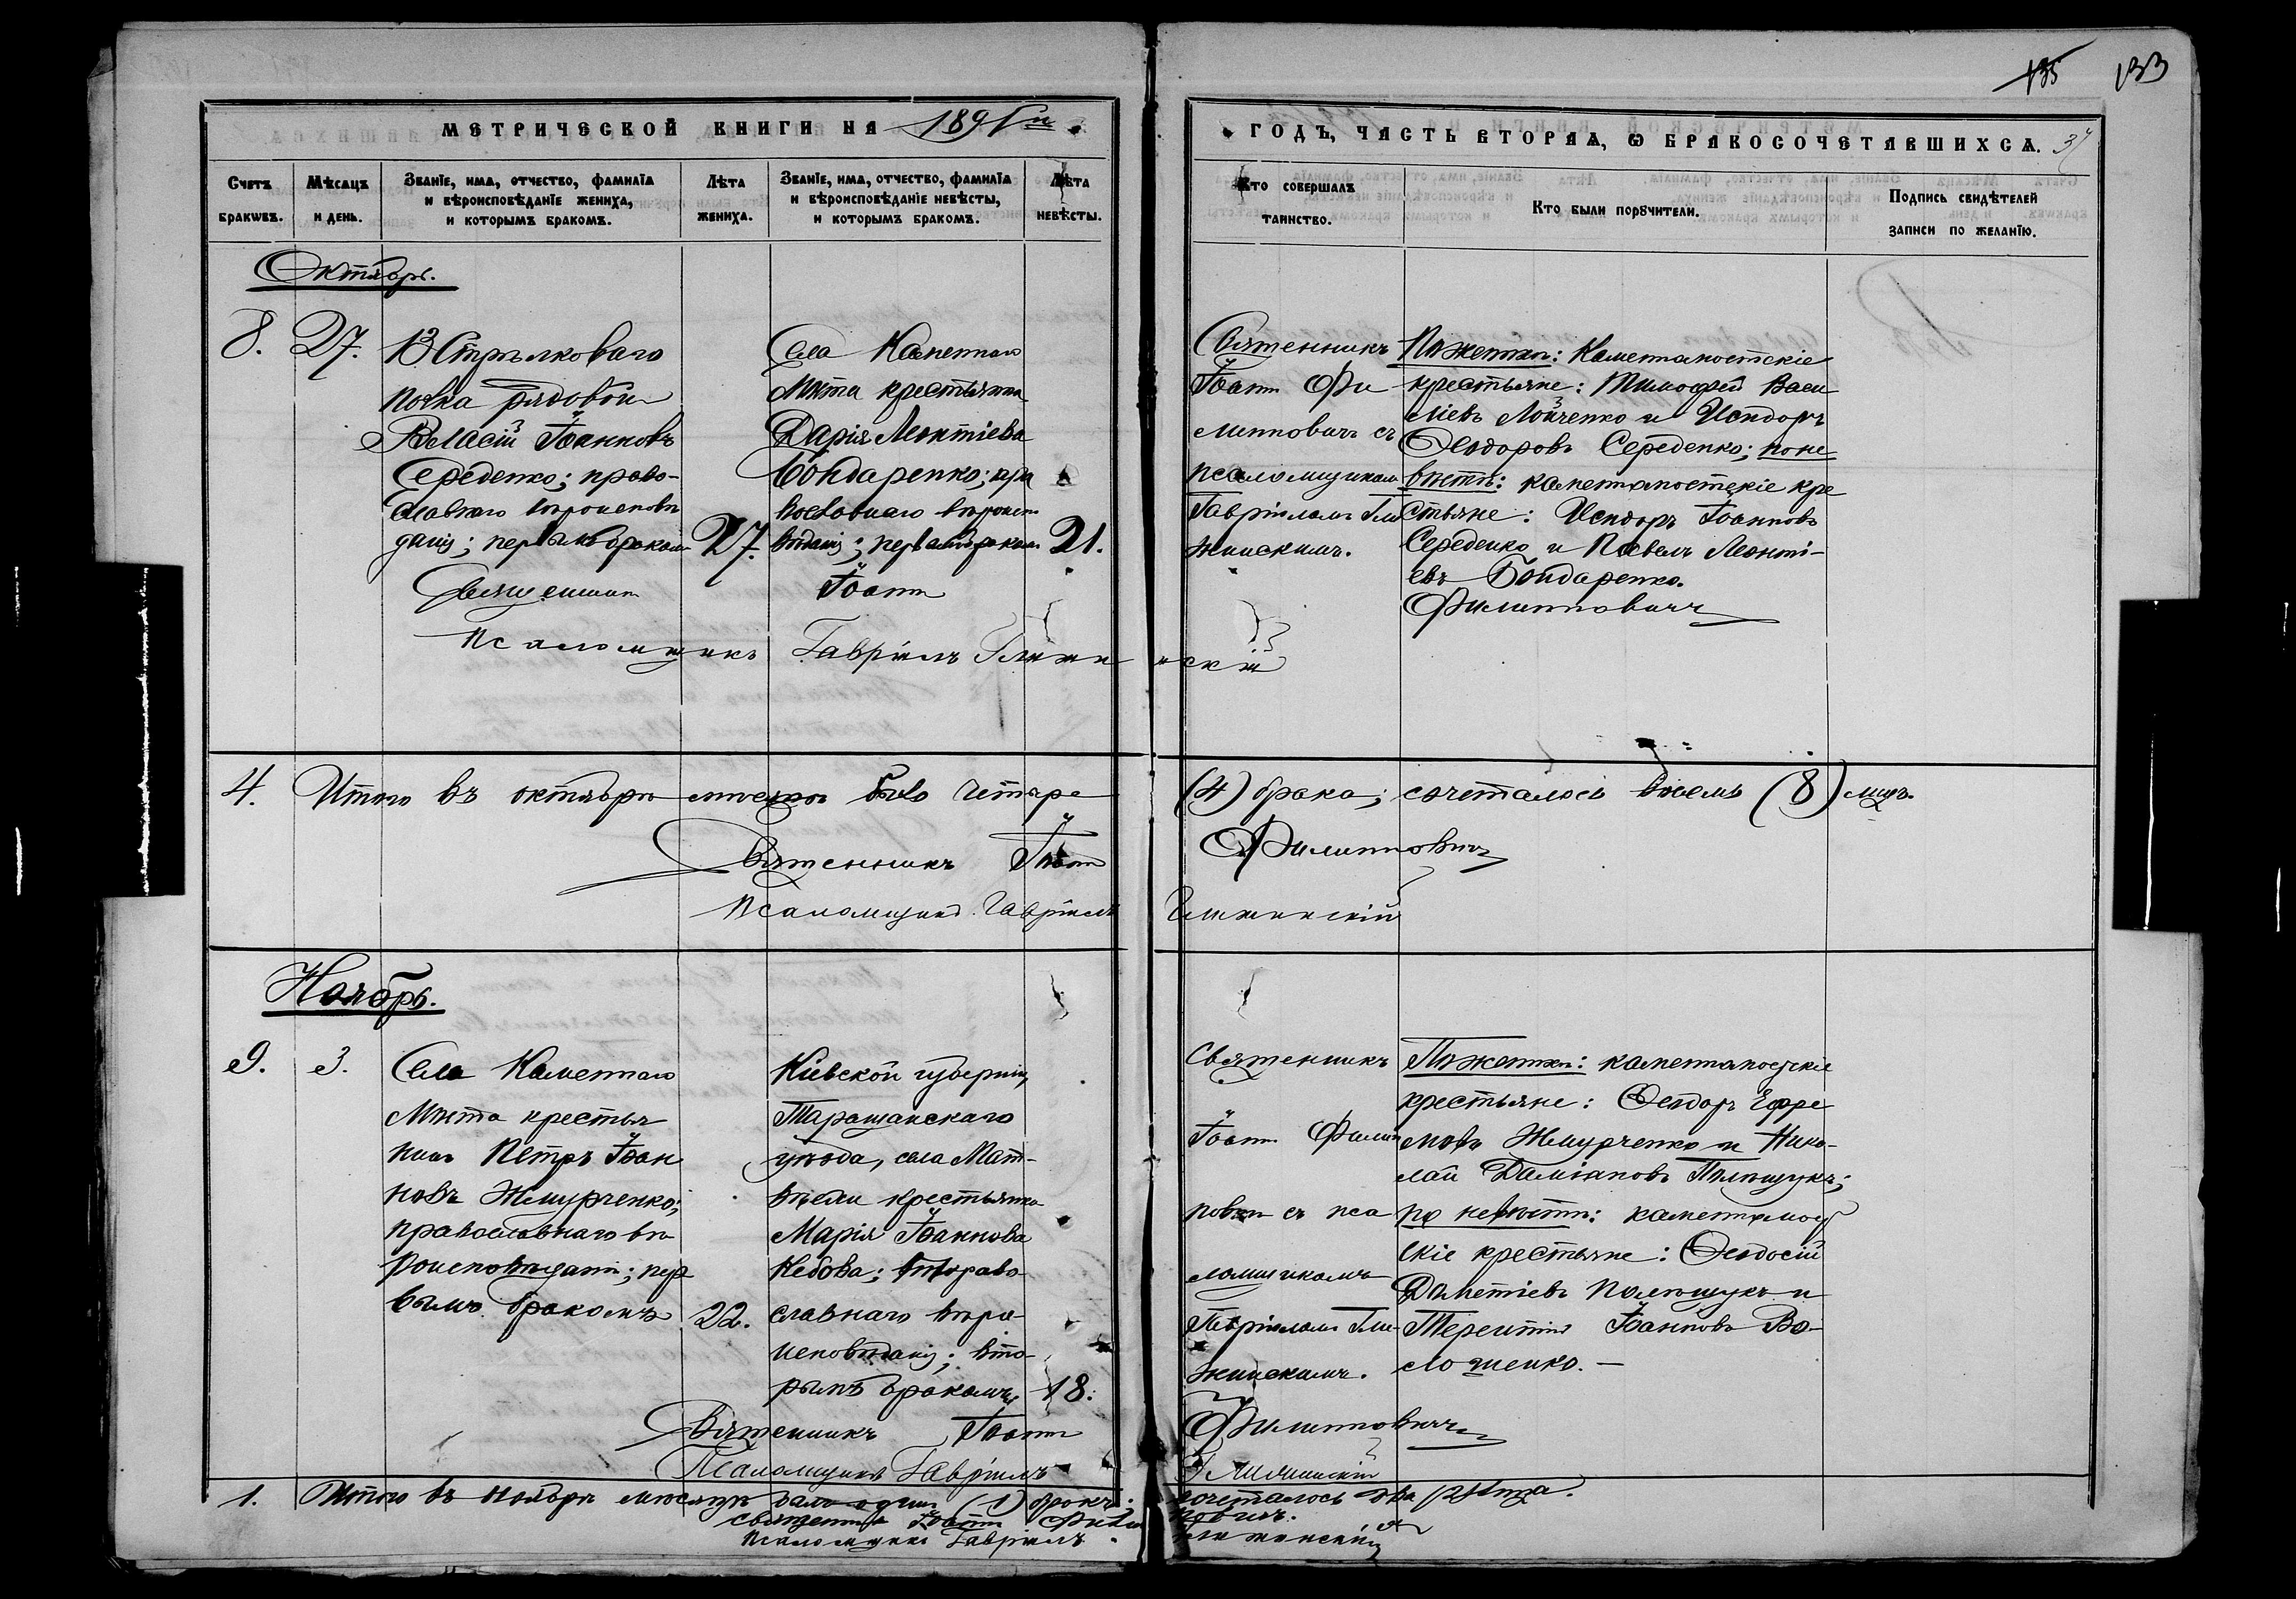 135 133
МЕТРИЧЕСКОЙ КНИГИ НА 1891й
ГОДЪ, ЧАСТЬ ВТОРАЯ, Ѡ БРАКОСОЧЕТАВШИХСЯ. 37
Счетъ браковъ.
Мѣсяцъ и день.
Званіе, имя, отчество, фамилія
и вѣроисповѣданіе жениха,
и которымъ бракомъ.
Лѣта жениха.
Званіе, имя, отчество, фамилія
и вѣроисповѣданіе невѣсты,
и которымъ бракомъ.
Лѣта невѣсты.
Кто совершалъ
таинство.
Кто были поручители.
Подпись свидѣтелей
записи по желанію.
Октябрь.
8. 27.
13 Стрѣлковаго
полка рядовой
Власій Іоанновъ
Середенко; право-
славнаго вѣроисповѣ
данія; первымъ бракомъ
27.
Села Каменнаго
Моста крестьянка
Дарія Леонтіева
Бондаренко; пра
вославнаго вѣроиспо
вѣданія; первымъ бракомъ
21.
Священникъ
Іоаннъ Фи
липповичъ съ
псаломщикомъ
Гавріиломъ Гли
жинскимъ.
По женихѣ: Каменномостскіе
крестьяне: Тимофей Васи
ліевъ Лойченко и Исидоръ
Ѳеодоровъ Середенко; по не
вѣстѣ: каменномостскіе кре
стьяне: Исидоръ Іоанновъ
Середенко и Павелъ Леонті-
евъ Бондаренко.
Священникъ Іоаннъ Филипповичъ
Псаломщикъ Гавріилъ Глижинскій
4. Итого въ октябрѣ мѣсяцѣ было четыре (4) брака; сочеталось восемь (8) лицъ.
Священникъ Іоаннъ Филипповичъ
Псаломщикъ Гавріилъ Глижинскій
Ноябрь.
9. 3.
Села Каменнаго
Моста крестья
нинъ Петръ Іоан
новъ Жмурченко;
православнаго вѣ
роисповѣданія; пер
вымъ бракомъ
22.
Кіевской губерніи,
Таращанскаго
уѣзда, села
крестьянка
Марія Іоаннова
православнаго вѣро
исповѣданія; вто-
рымъ бракомъ
18.
Священникъ
Іоаннъ Филип
повичъ съ пса
ломщикомъ
Гавріиломъ Гли-
жинскимъ.
По женихѣ: каменномостскіе
крестьяне: Ѳеодоръ Ефре
мовъ Жмурченко и Нико-
лай Даміановъ Полищукъ;
по невѣстѣ: каменномост
скіе крестьяне: Ѳеодосій
Дометіевъ Полищукъ и
Терентій Іоанновъ Во-
лошенко. —
Священникъ Іоаннъ Филипповичъ
Псаломщикъ Гавріилъ Глижинскій
1. Итого въ ноябрѣ мѣсяцѣ былъ одинъ (1) бракъ; сочеталось два (2) лица.
Священникъ Іоаннъ Филипповичъ.
Псаломщикъ Гавріилъ Глижинскій